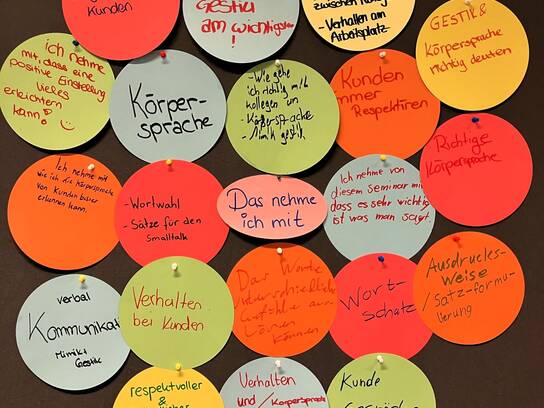 Kunden
Gestik
am wichtigsten
!
zwischen
- Verhalten am
Arbeitsplatz
GESTIK &
Körpersprache
richtig deuten
ich nehme
mit, dass eine
positive Einstellung
vieles
erleichtern
kann!
Körper-
sprache
- Wie gehe
ich richtig mit
kollegen um
- Körpersprache
/ Mimik gestik
Kunden
immer
Respektieren
Richtige
Körpersprache
Ich nehme mit
wie ich die Körpersprache
von Kunden besser
erkennen kann.
- Wortwahl
- Sätze für den
Smalltalk
Das nehme
ich mit
Ich nehme von
diesem Seminar mit
dass es sehr wichtig
ist was man sagt.
verbal
Kommunikat
Mimik
Gestik
Verhalten
bei Kunden
Das Worte
unterschiedliche
Gefühle aus-
lösen
können
Wort-
schatz
Ausdrucks-
weise
/Satz-formu-
lierung
respektvoller
&
Verhalten
und /Körpersprache
Kunde